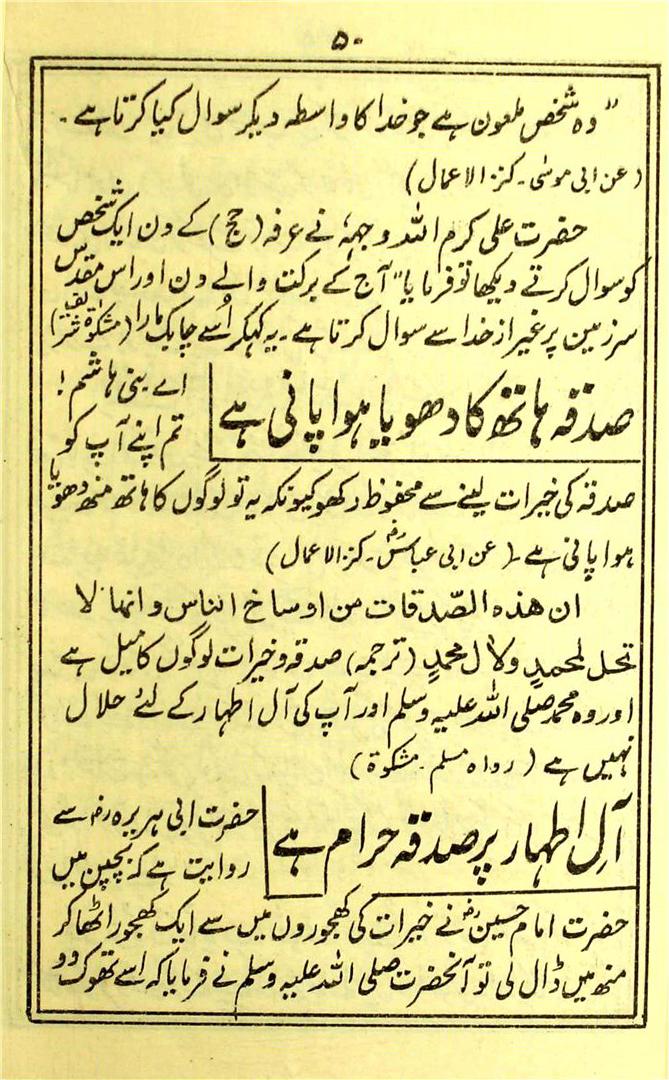 ۵۰
"وہ شخص ملعون ہے جو خدا کا واسطہ دیکر سوال کیا کرتا ہے۔
(عن ابی موسیٰ۔ کنز الاعمال)
حضرت علی کرم اللہ وجہہٗ نے عرفہ (حج) کے دن ایک شخص
کو سوال کرتے دیکھا تو فرمایا "آج کے برکت والے دن اور اس مقدس
سرزمین پر غیر از خدا سے سوال کرتا ہے۔ یہ کہکر اُسے چابک مارا (مشکوٰۃ شریف)
صدقہ ہاتھ کا دھویا ہوا پانی ہے
اے بنی ہاشم!
تم اپنے آپ کو
صدقہ کی خیرات لینے سے محفوظ رکھو کیونکہ یہ تو لوگوں کا ہاتھ منھ دھویا
ہوا پانی ہے۔ (عن ابی عباسؓ۔ کنز الاعمال)
ان ھذہ الصّدقات من اوساخ الناس وانھا لا
تحل لمحمدٍ ولاٰل محمدٍ (ترجمہ) صدقہ و خیرات لوگوں کا میل ہے
اور وہ محمد صلی اللہ علیہ وسلم اور آپ کی آل اطہار کے لئے حلال
نہیں ہے (رواہ مسلم۔ مشکوٰۃ)
آلِ اطہار پر صدقہ حرام ہے
حضرت ابی ہریرہ رض سے
روایت ہے کہ بچپن میں
حضرت امام حسینؓ نے خیرات کی کھجوروں میں سے ایک کھجور اٹھا کر
منھ میں ڈال لی تو آنحضرت صلی اللہ علیہ وسلم نے فرمایا کہ اسے تھوک دو